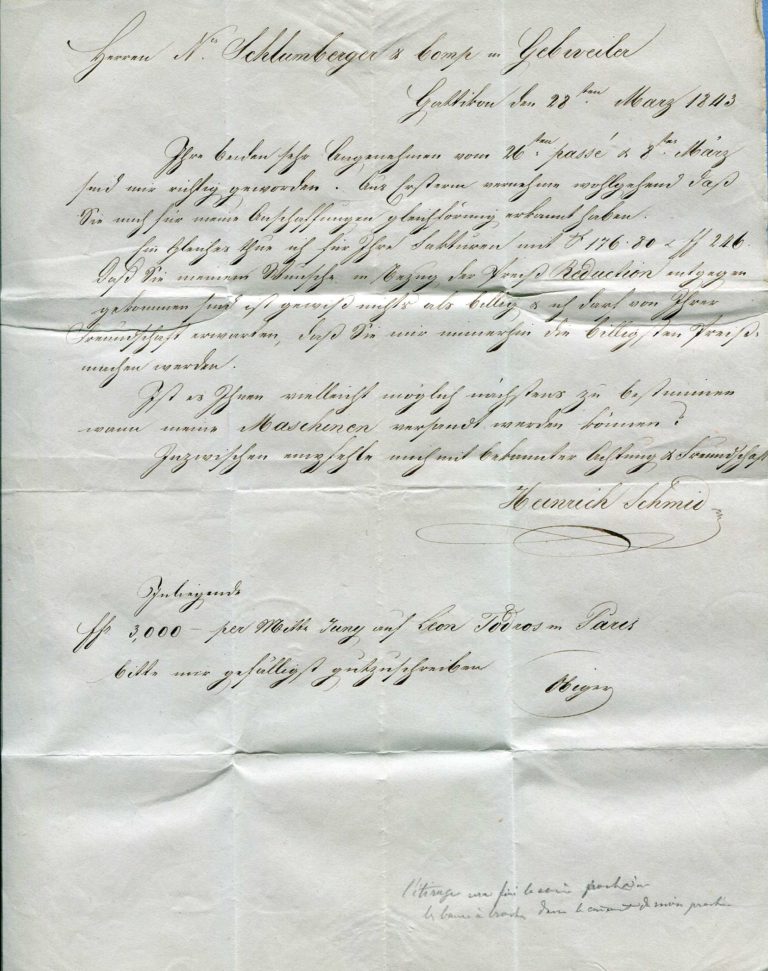 Herren Ns. Schlumberger & Comp in Gebweiler
Gattikon den 28sten März 1843
Ihre beiden sehr Angenehmen vom 26sten passé & 8ten März
sind mir richtig geworden. Aus Ersterm vernehme wohlgehend daß
Sie mich für meine Anschaffungen gleichförmig erkannt haben.
Ein Gleiches thue ich für Ihre Fakturen mit 176.80 & 246
Daß Sie meinem Wunsche in Bezug der Preiß Reduction entgegen
gekommen sind ist gewiß nichts als billig & ich darf von Ihrer
Freundschaft erwarten, daß Sie mir immerhin die billigsten Preiße
machen werden.
Ist es Ihnen vielleicht möglich nächstens zu bestimmen
wann meine Maschenen versandt werden können?
Inzwischen empfehle mich mit bekannter Achtung & Freundschaft
Heinrich Schmid
Inliegende
ffs 3,000 – per Mitte Juny auf Leon Todros in Paris
bitte mir gefälligst gutzuschreiben
Obiger
l'étirage sera fini le mois prochain
les bancs à broches dans le courant du mois prochain